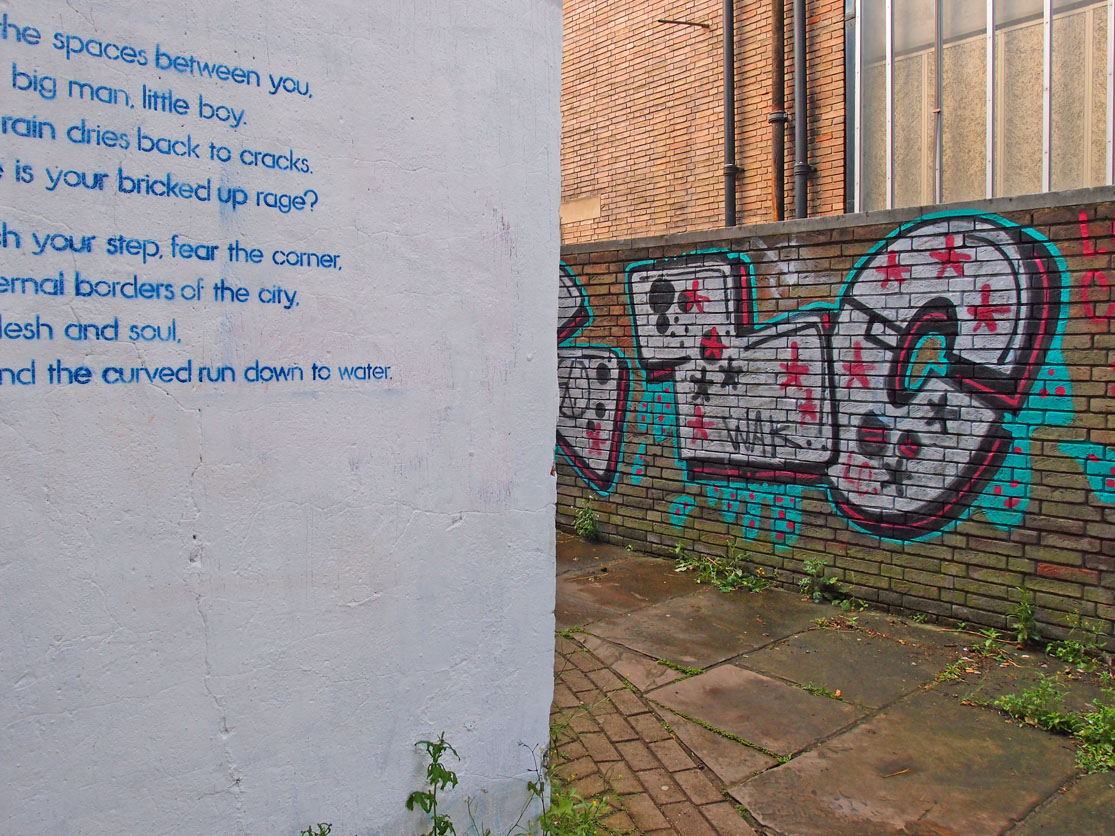 he spaces between you,
big man, little boy.
rain dries back to cracks.
e is your bricked up rage?
ch your step, fear the corner,
ernal borders of the city,
lesh and soul,
nd the curved run down to water.
WAK